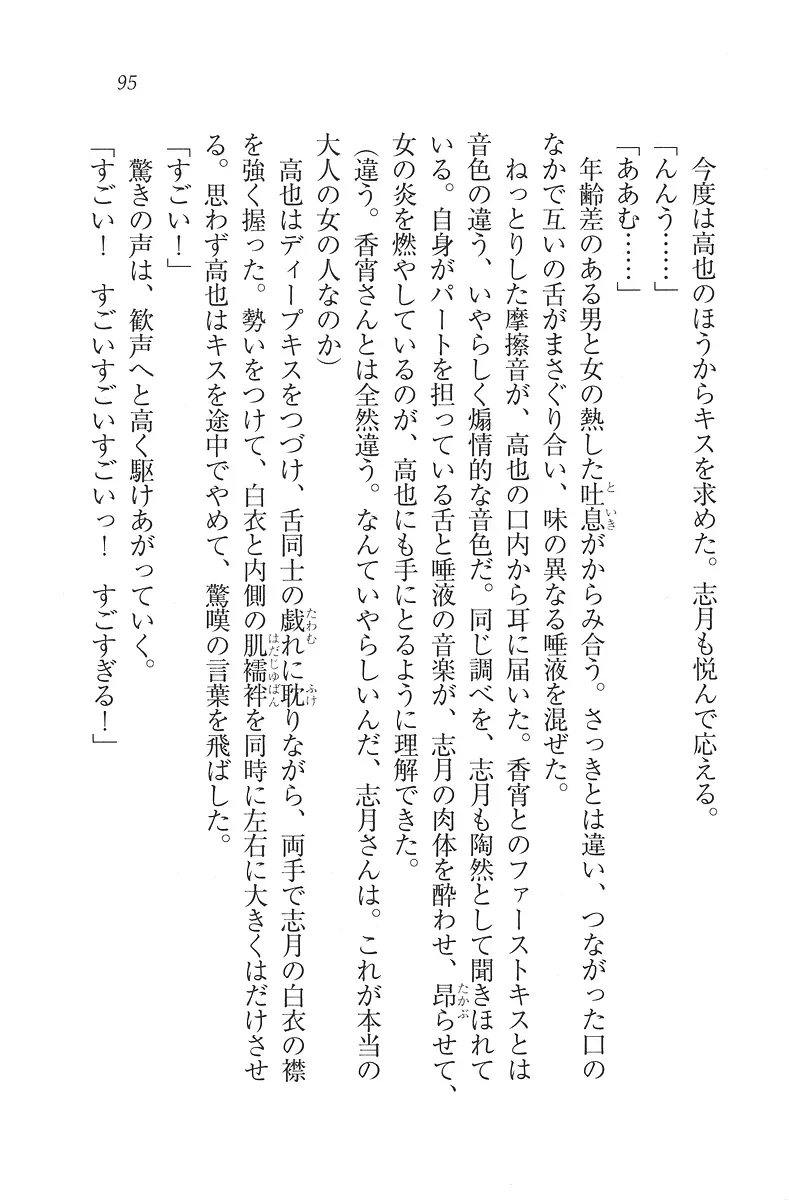 95
今度は高也のほうからキスを求めた。志月も悦んで応える。
「んんう……」
「ああむ……」
年齢差のある男と女の熱した吐息がからみ合う。さっきとは違い、つながった口の
なかで互いの舌がまさぐり合い、味の異なる唾液を混ぜた。
ねっとりした摩擦音が、高也の口内から耳に届いた。香宵とのファーストキスとは
音色の違う、いやらしく煽情的な音色だ。同じ調べを、志月も陶然として聞きほれて
いる。自身がパートを担っている舌と唾液の音楽が、志月の肉体を酔わせ、昂らせて、
女の炎を燃やしているのが、高也にも手にとるように理解できた。
(違う。香宵さんとは全然違う。なんていやらしいんだ、志月さんは。これが本当の
大人の女の人なのか)
高也はディープキスをつづけ、舌同士の戯れに耽りながら、両手で志月の白衣の襟
を強く握った。勢いをつけて、白衣と内側の肌襦袢を同時に左右に大きくはだけさせ
る。思わず高也はキスを途中でやめて、驚嘆の言葉を飛ばした。
「すごい！」
驚きの声は、歓声へと高く駆けあがっていく。
「すごい！　すごいすごいすごいっ！　すごすぎる！」